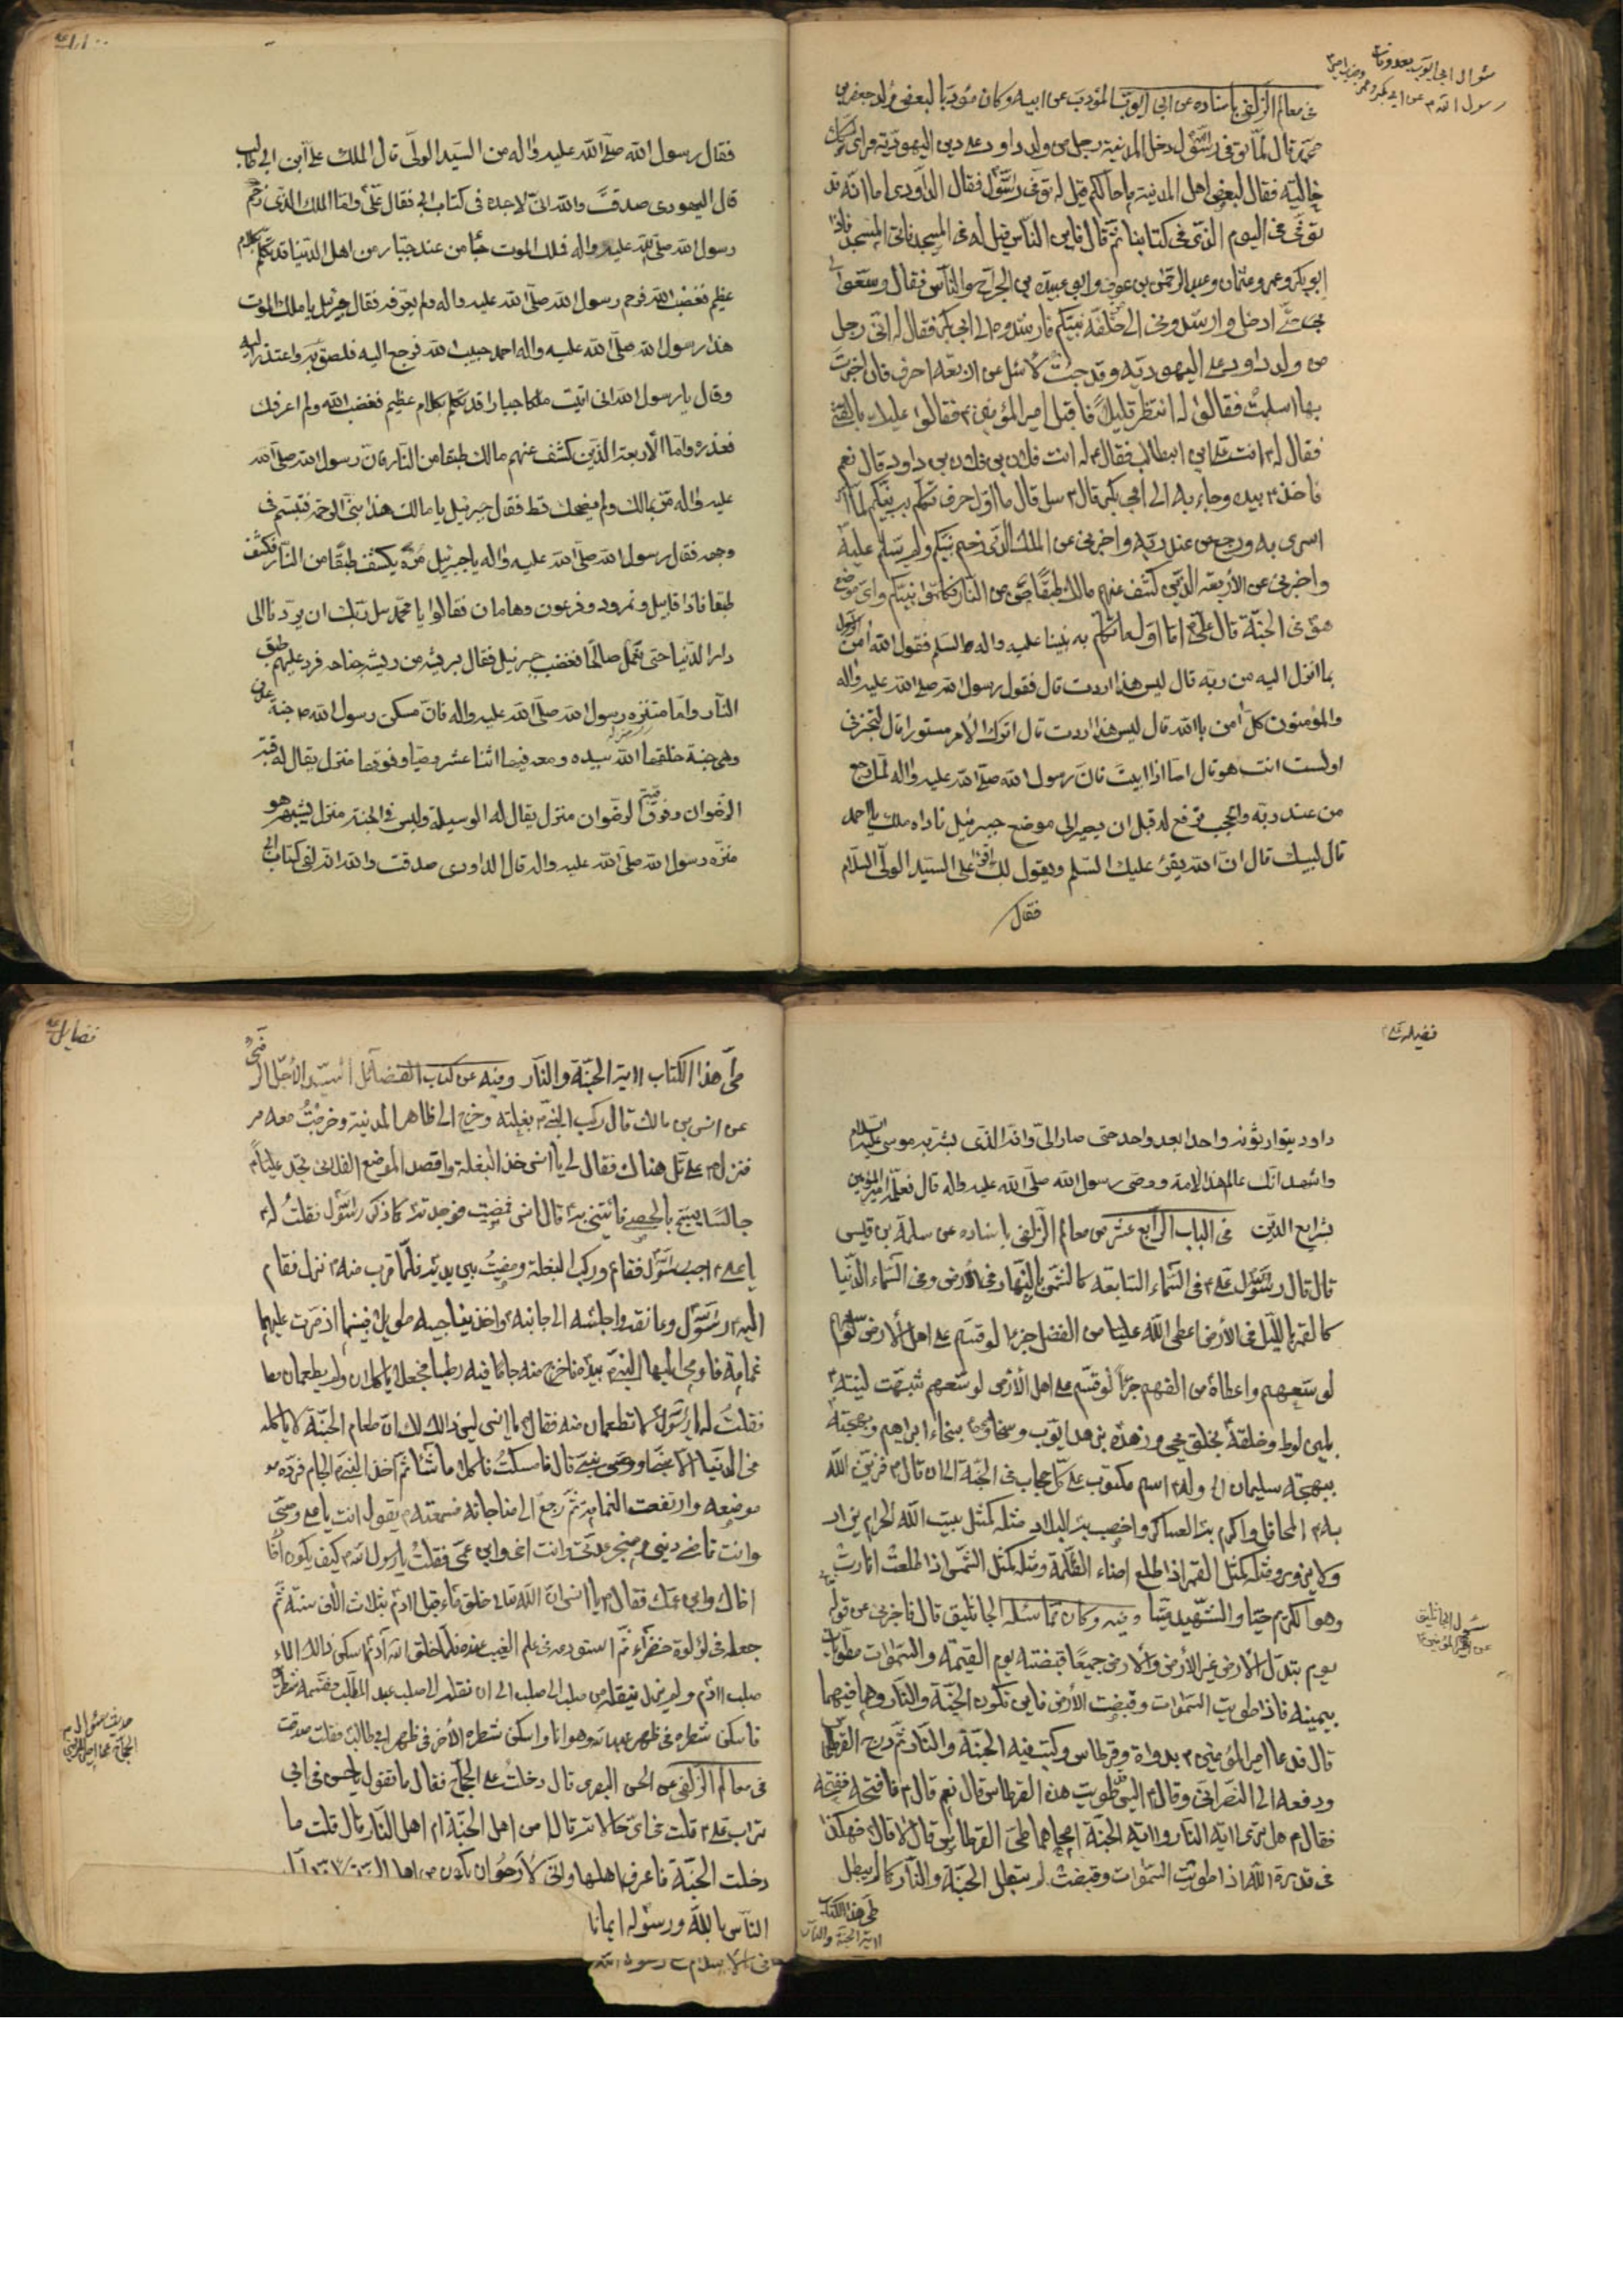 سؤال ابي ايوب بعد وفات
رسول الله م عن ابي بكر و عمر
في معالم الزلفى باسناده عن ابي ايوب المؤدب عن ابيه وكان مؤدبا لبعض ولد جعفر بن
محمد قال لما توفى رسول الله دخل المدينة رجل من ولد داود على دين اليهودية فراى
خالية فقال لبعض اهل المدينة ما حالكم قيل له توفى رسول الله فقال الداودى اما انه قد
توفى فى اليوم الذى فى كتابنا ثم قال فاين الناس فقيل له فى المسجد فاتى المسجد فاذا
ابو بكر وعمر وعثمان وعبد الرحمن بن عوف وابو عبيدة بن الجراح والناس فقال وسعوا
حتى ادخل وارشدونى الى خليفة نبيكم فارشدوه الى ابى بكر فقال له انى رجل
من ولد داود على اليهودية وقد جئت لاسئل عن اربعة احرف فان اخبرت
بها اسلمت فقالوا له انتظر قليلا فاقبل امير المؤمنين ع فقالوا عليك بالفتى
فقال له انت على بن ابيطالب فقال ع له انت فلان بن فلان بن داود قال نعم
فاخذ ع بيده وجاء به الى ابى بكر قال ع سل قال ما اول حرف تكلم به نبيكم لما
اسرى به ورجع من عند ربه واخبرنى عن الملك الذى زحم نبيكم ولم يسلم عليه
واخبرنى عن الاربعة الذين كشف عنهم مالك طبقا من النار فكلموا نبيكم واى موضع
هو فى الجنة قال على ع اما اول ما تكلم به نبينا عليه واله السلم فقول الله امن الرسول
بما انزل اليه من ربه قال ليس هذا اردت قال فقول رسول الله صلى الله عليه واله
والمؤمنون كل امن بالله قال ليس هذا اردت قال اترك الأمر مستورا قال لتخبرنى
اولست انت هو قال اما اذا ابيت فان رسول الله صلى الله عليه واله لما رجع
من عند ربه والحجب ترفع له قبل ان يصير الى موضع جبرئيل ناداه ملك يا احمد
قال لبيك قال ان الله يقرئ عليك السلم ويقول لك اقرأ على السيد الولى السلام
فقال
فقال رسول الله صلى الله عليه واله من السيد الولى قال الملك على ابن ابي طالب
قال اليهودى صدقت والله انى لاجده فى كتاب ابى فقال على واما الملك الذى زحم
رسول الله صلى الله عليه واله فملك الموت جا من عند جبار من اهل الدنيا قد تكلم بكلام
عظيم فغضب الله فزحم رسول الله صلى الله عليه واله ولم يعرفه فقال جبرئيل يا ملك الموت
هذا رسول الله صلى الله عليه واله احمد حبيب الله فرجع اليه فلصق به واعتذر اليه
وقال يا رسول الله انى اتيت ملكا جبارا قد تكلم بكلام عظيم فغضب الله ولم اعرفك
فعذره واما الأربعة الذين كشف عنهم مالك طبقا من النار فان رسول الله صلى الله
عليه واله مر بمالك ولم يضحك قط فقال جبرئيل يا مالك هذا نبى الرحمة فتبسم فى
وجهه فقال رسول الله صلى الله عليه واله يا جبرئيل مره يكشف طبقا من النار فكشف
طبقا فاذا قابيل ونمرود وفرعون وهامان فقالوا يا محمد سل ربك ان يردنا الى
دار الدنيا حتى نعمل صالحا فغضب جبرئيل فقال بريشة من ريش جناحه فرد عليهم طبق
النار واما منزل رسول الله صلى الله عليه واله فان مسكن رسول الله ص جنة عدن
وهى جنة خلقها الله بيده ومعه فيها اثنا عشر وصيا وفوقها منزل يقال له قبة
الرضوان وفوق قبة الرضوان منزل يقال له الوسيلة وليس فى الجنة منزل يشبهه هو
منزل رسول الله صلى الله عليه واله قال الداودى صدقت والله انه لفى كتاب ابى
داود يتوارثونه واحدا بعد واحد حتى صار الى وانه الذى بشر به موسى عليه السلام
واشهد انك عالم هذه الامة ووصى رسول الله صلى الله عليه واله قال فعلمه امير المؤمنين
شرايع الدين فى الباب الرابع عشر من معالم الزلفى باسناده عن سلمة بن قيس
قال قال رسول الله على ع فى السماء السابعة كالشمس بالنهار فى الأرض وفى السماء الدنيا
كالقمر بالليل فى الأرض اعطى الله عليا من الفضل جزءا لو قسم على اهل الأرض
لوسعهم واعطاه من الفهم جزءا لو قسم على اهل الأرض لوسعهم شبهت لينته
بلين لوط وخلقه بخلق يحيى وزهده بزهد ايوب وسخاوته بسخاء ابراهيم وبهجته
ببهجة سليمان وله اسم مكتوب على كل حجاب فى الجنة الى ان قال ع فزين الله
به المحافل واكرم به العساكر واخصب به البلاد مثله كمثل بيت الله الحرام يزار
ولا يزور ومثله كمثل القمر اذا طلع اضاء الظلمة ومثله كمثل الشمس اذا طلعت انارت
وهو الكريم حيا والشهيد ميتا وفيه وكان مما سئله الجاثليق قال فاخبرنى عن قوله
يوم تبدل الأرض غير الأرض والأرض جميعا قبضته يوم القيمة والسموات مطويات
بيمينه فاذا طويت السموات وقبضت الأرض فاين تكون الجنة والنار وهما فيهما
قال فدعا امير المؤمنين ع بدواة وقرطاس وكتب فيه الجنة والنار ثم درج القرطاس
ودفعه الى النصرانى وقال ع اليس طويت هذه القرطاس قال نعم قال ع فافتحه ففتحه
فقال ع هل ترى اية النار واية الجنة امحاهما طى القرطاس قال لا قال فهكذا
فى قدرة الله اذا طويت السموات وقبضت لم تبطل الجنة والنار كما لم يبطل
طى هذا الكتاب
اية الجنة والنار
سئول الجاثليق
عن امير المؤمنين
طى هذا الكتاب اية الجنة والنار وفيه عن كتاب الفضائل
عن انس بن مالك قال ركب النبى بغلته وخرج الى ظاهر المدينة وخرجت معه
فنزل على تل هناك فقال لى يا انس خذ البغلة واقصد الموضع الفلانى تجد عليا
جالسا يسبح بالحصى فائتنى به قال انس فمضيت فوجدته كما ذكر رسول الله فقلت له
يا على اجب رسول الله فقام وركب البغلة ومضيت بين يديه فلما قرب منه نزل فقام
اليه رسول الله وعانقه واجلسه الى جانبه واخذ يناجيه طويلا فبينما اذ مرت عليهما
غمامة فاومى اليها النبى بيده فاخرج منه جاما فيه رطبا فجعلا ياكلان ولم يطعمان
فقلت له يا رسول الله ما تطعمان منه فقال يا انس ليس ذالك لك ان طعام الجنة لا ياكله
فى الدنيا الا نبى او وصى نبى قال فامسكت فاكلا ما شا ثم اخذ النبى الجام فرده
موضعه وارتفعت الغمامة ثم رجع الى مناجاته فسمعته يقول انت يا على وصيى
وانت قاضى دينى ومنجز عدتى وانت اخى وابن عمى فقلت يا رسول الله كيف يكون
اخاك وابن عمك فقال يا انس ان الله تعالى خلق ماء قبل ادم بثلاث الاف سنة ثم
جعله فى لؤلؤة خضراء ثم استودعه فى علم الغيب عنده فلما خلق الله ادم اسكن ذالك الماء
صلب ادم ولم يزل ينقله من صلب الى صلب الى ان نقله الى صلب عبد المطلب فقسمه شطر
فاسكن شطره فى ظهر عبد الله وهو انا واسكن شطره الأخر فى ظهر ابى طالب فقلت صدقت
فى معالم الزلفى عن الحسن البصرى قال دخلت على الحجاج فقال ما تقول يا حسن فى ابى
تراب على قلت فى اى حالاته قال امن اهل الجنة ام اهل النار قال قلت ما
دخلت الجنة فاعرف اهلها وانى لأرجو ان يكون من اهل الجنة
الناس بالله ورسوله ايمانا